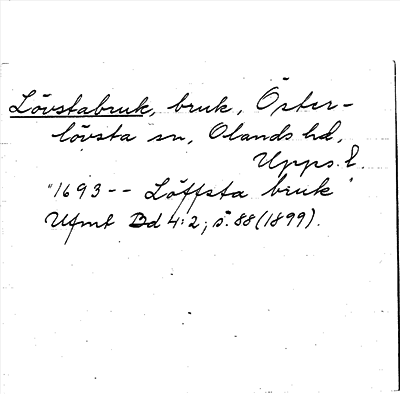 Lövstabruk, bruk, Öster-
lövsta sn, Olands hd,
Upps. l.
"1693-- Löffsta bruk"
Ufmt Bd 4:2, s. 88 (1899).